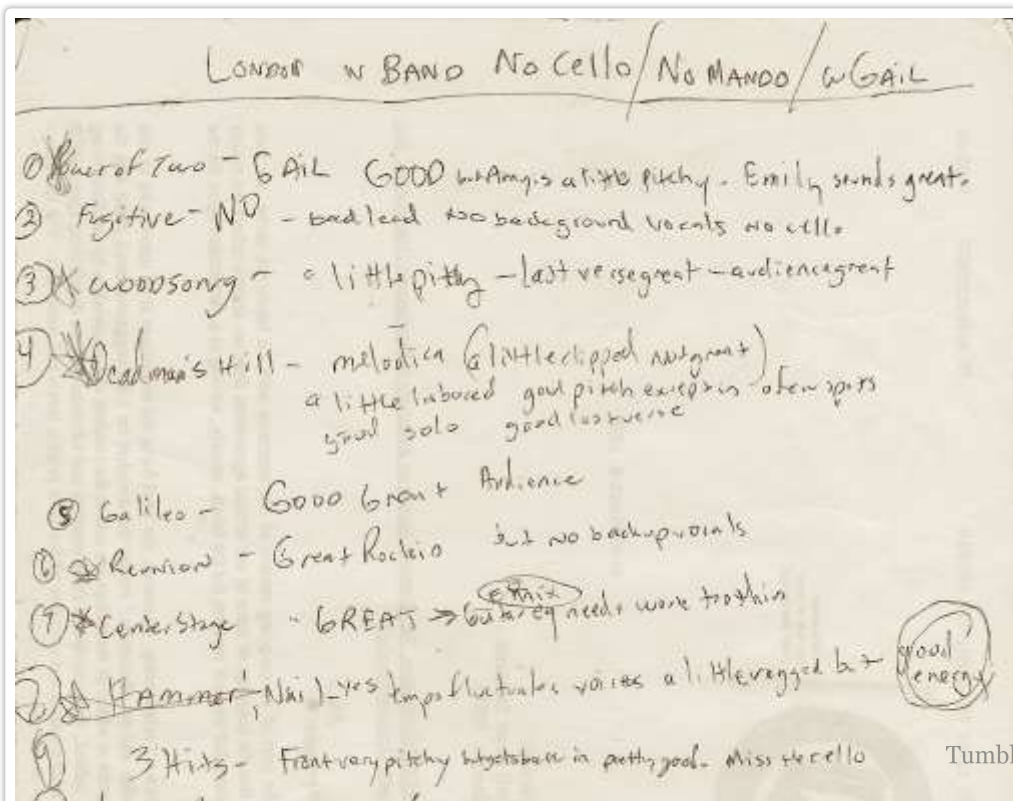 LONDON W BAND No Cello / No MANDO / w GAIL
① Power of Two - GAIL GOOD but Amy is a little pitchy. Emily sounds great.
② Fugitive - NO - bad lead no background vocals no cello
③ Woodsong - a little pitchy - last verse great - audience great
④ Deadman's Hill - melodica (a little clipped not great)
a little labored good pitch except in a few spots
good solo good last verse
⑤ Galileo - Good Great Audience
⑥ Reunion - Great Rockin but no backup vocals
remix
⑦ Center Stage - GREAT → Guitar eq needs work too thin
HAMMER, Nail - yes tempo fluctuates voices a little ragged but good energy
⑨ 3 Hits - Front very pitchy but gets back in pretty good. Miss the cello
Tumbl